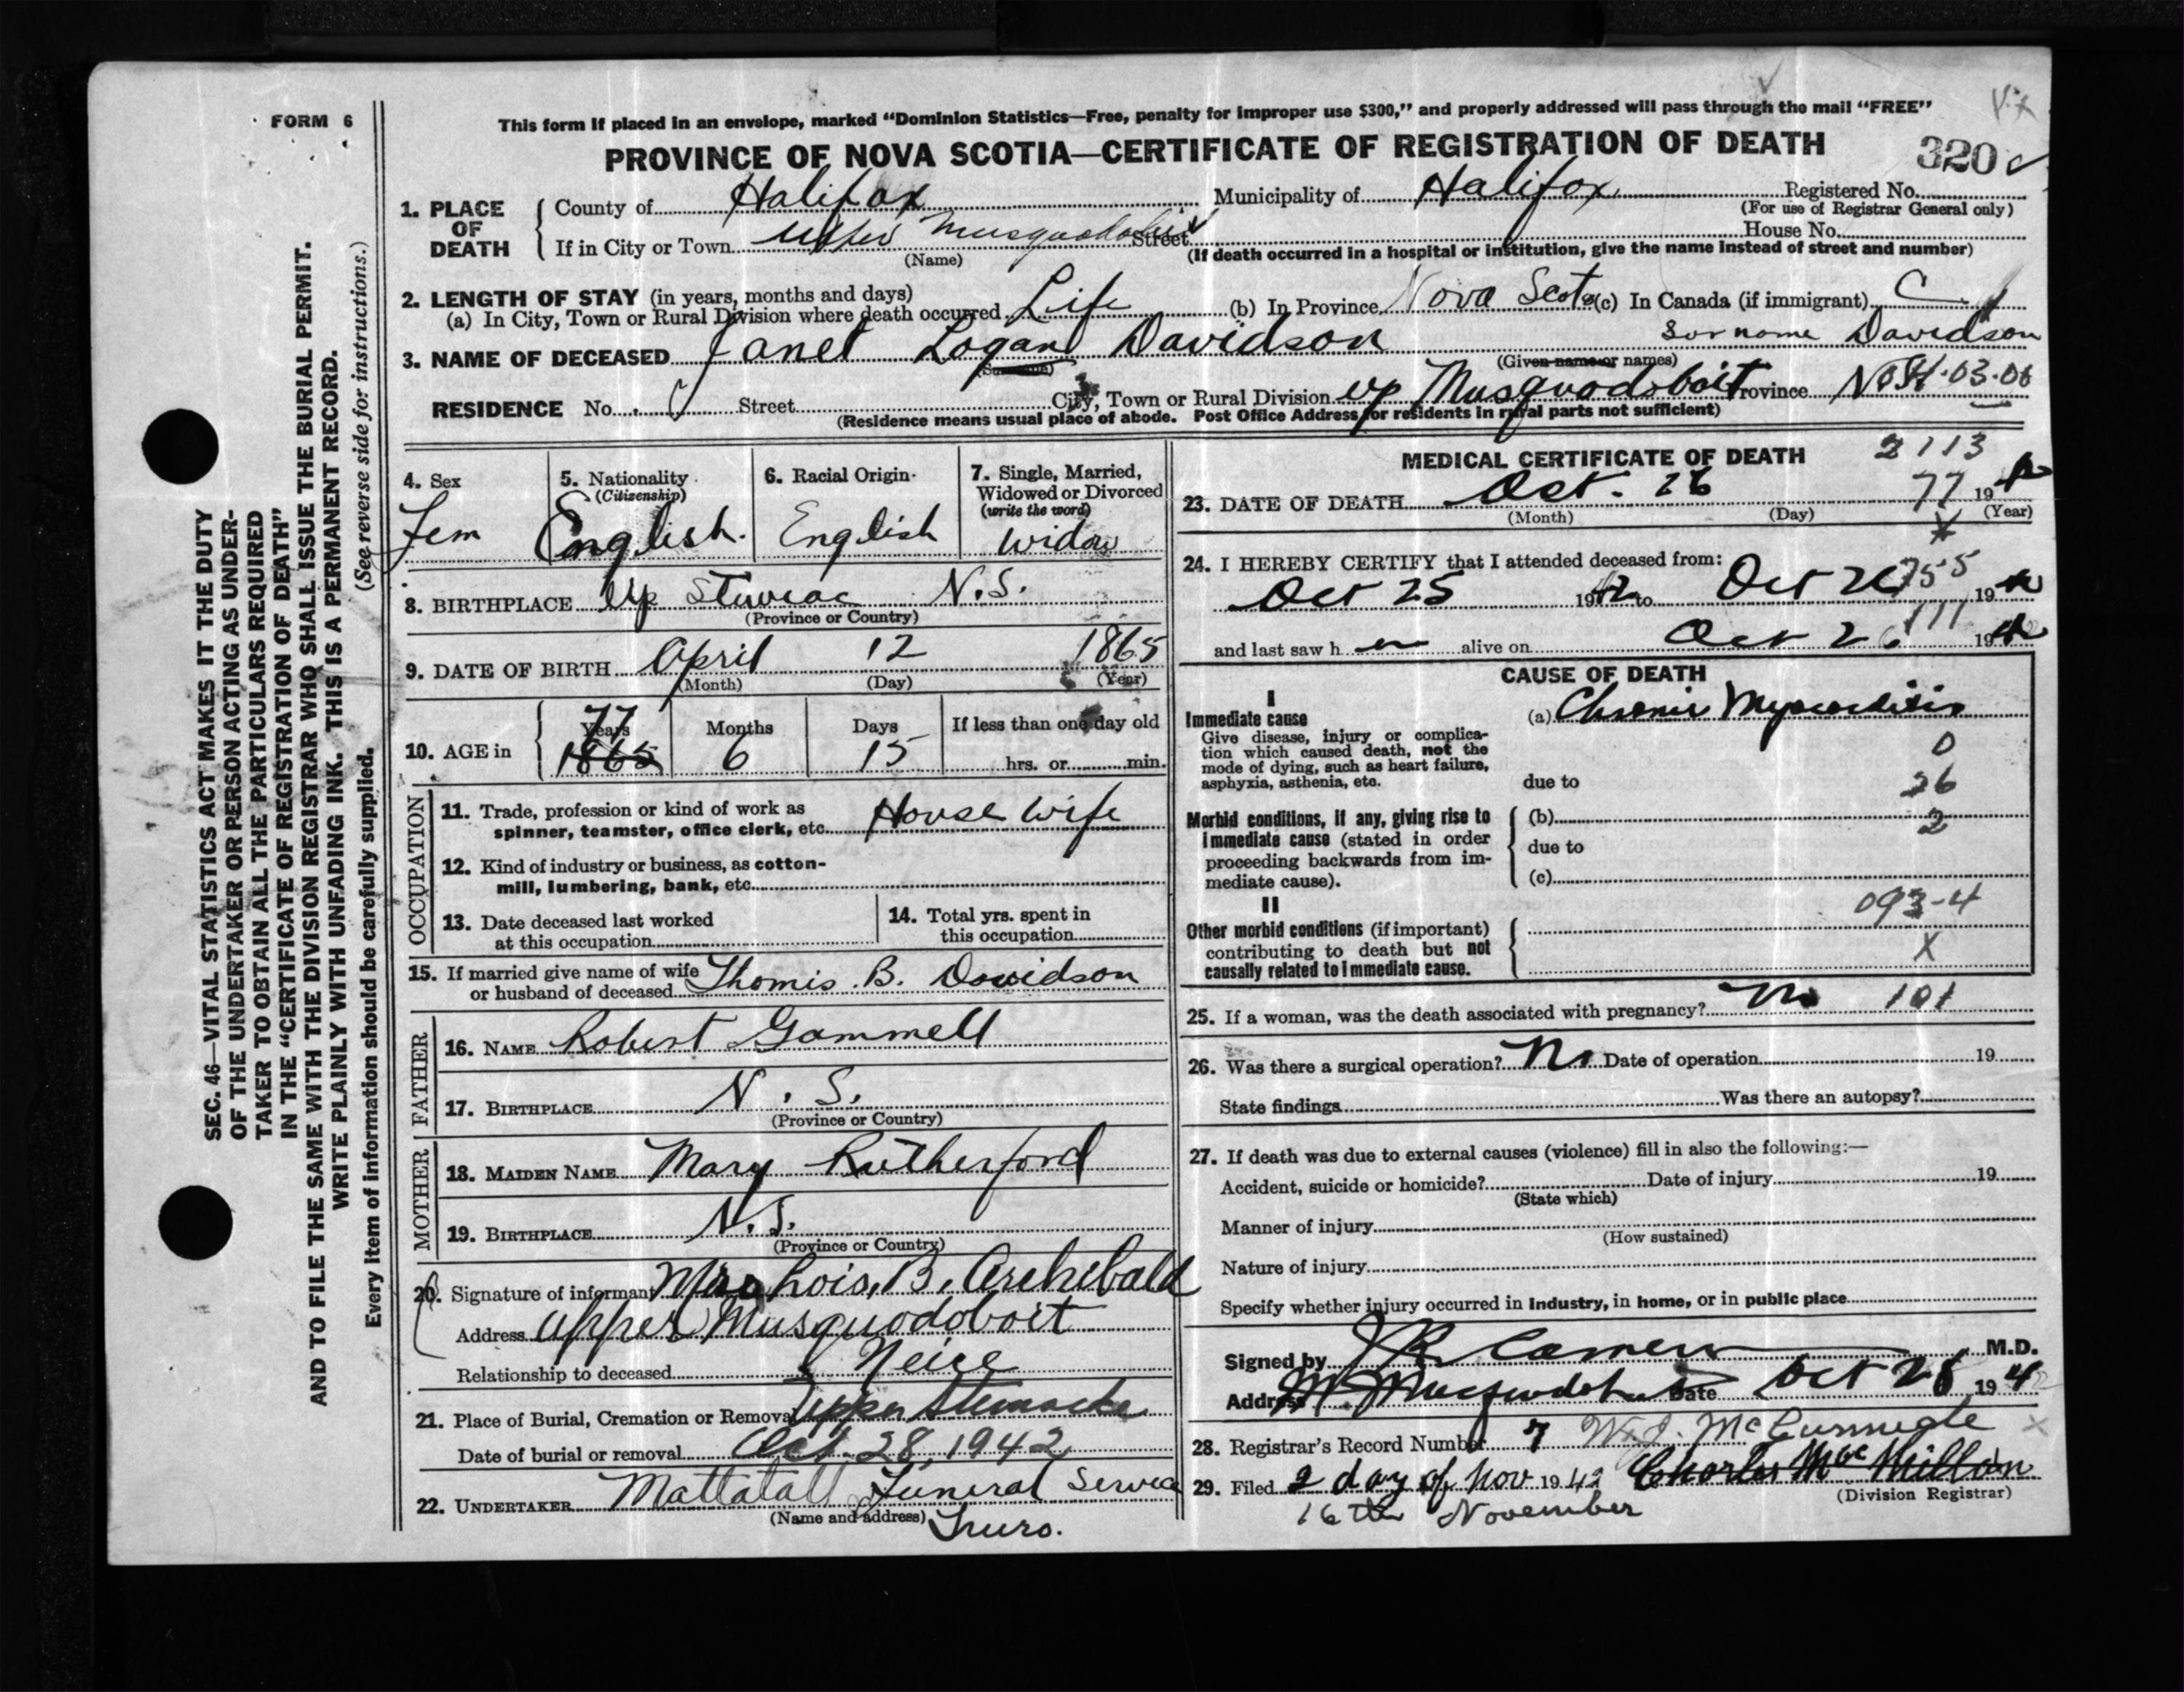 FORM 6
This form if placed in an envelope, marked "Dominion Statistics—Free, penalty for improper use $300," and properly addressed will pass through the mail "FREE"
PROVINCE OF NOVA SCOTIA—CERTIFICATE OF REGISTRATION OF DEATH
320
1. PLACE OF DEATH
County of Halifax Municipality of Halifax Registered No.
(For use of Registrar General only)
If in City or Town Upper Musquodoboit Street House No.
(Name) (If death occurred in a hospital or institution, give the name instead of street and number)
2. LENGTH OF STAY (in years, months and days)
(a) In City, Town or Rural Division where death occurred Life (b) In Province Nova Scota (c) In Canada (if immigrant) C
Surname Davidson
3. NAME OF DECEASED Janet Logan Davidson
(Surname) (Given name or names)
RESIDENCE No. Street City, Town or Rural Division up Musquodoboit Province N.S. 4.03.08
(Residence means usual place of abode. Post Office Address for residents in rural parts not sufficient)
4. Sex
Fem
5. Nationality
(Citizenship)
English.
6. Racial Origin
English
7. Single, Married,
Widowed or Divorced
(write the word)
Widow
8. BIRTHPLACE Up Stewiac N.S.
(Province or Country)
9. DATE OF BIRTH April 12 1865
(Month) (Day) (Year)
10. AGE in
77
Years Months Days If less than one day old
1865 6 15 hrs. or min.
OCCUPATION
11. Trade, profession or kind of work as
spinner, teamster, office clerk, etc. House Wife
12. Kind of industry or business, as cotton-
mill, lumbering, bank, etc.
13. Date deceased last worked
at this occupation
14. Total yrs. spent in
this occupation
15. If married give name of wife
or husband of deceased Thomis. B. Davidson
FATHER
16. NAME Robert Gammell
17. BIRTHPLACE N. S.
(Province or Country)
MOTHER
18. MAIDEN NAME Mary Rutherford
19. BIRTHPLACE N.S.
(Province or Country)
20. Signature of informant Mrs Lois. B. Archebald
Address Upper Musquodoboit
Relationship to deceased Neice
21. Place of Burial, Cremation or Removal Upper Stewiacke
Date of burial or removal Oct. 28, 1942
22. UNDERTAKER Mattatall Funeral Service
(Name and address) Truro.
MEDICAL CERTIFICATE OF DEATH 2113
77
23. DATE OF DEATH Oct. 26 19 42
(Month) (Day) (Year)
24. I HEREBY CERTIFY that I attended deceased from:
Oct 25 1942 to Oct 26 19 42
755
111
and last saw h er alive on Oct 26 19 42
CAUSE OF DEATH
I
Immediate cause
Give disease, injury or complica-
tion which caused death, not the
mode of dying, such as heart failure,
asphyxia, asthenia, etc.
(a) Chronic Myocarditis
0
due to 26
Morbid conditions, if any, giving rise to
immediate cause (stated in order
proceeding backwards from im-
mediate cause).
(b) 2
due to
(c)
II
Other morbid conditions (if important)
contributing to death but not
causally related to immediate cause.
093-4
X
25. If a woman, was the death associated with pregnancy? No 101
26. Was there a surgical operation? No Date of operation 19
State findings Was there an autopsy?
27. If death was due to external causes (violence) fill in also the following:—
Accident, suicide or homicide? Date of injury 19
(State which)
Manner of injury
(How sustained)
Nature of injury
Specify whether injury occurred in industry, in home, or in public place
Signed by M.D.
Address M. Musquodoboit Date Oct 28 1942
28. Registrar's Record Number 7
29. Filed 2 day of Nov 1942 Charles MacMillan
(Division Registrar)
16th November
SEC. 46—VITAL STATISTICS ACT MAKES IT THE DUTY
OF THE UNDERTAKER OR PERSON ACTING AS UNDER-
TAKER TO OBTAIN ALL THE PARTICULARS REQUIRED
IN THE "CERTIFICATE OF REGISTRATION OF DEATH"
AND TO FILE THE SAME WITH THE DIVISION REGISTRAR WHO SHALL ISSUE THE BURIAL PERMIT.
WRITE PLAINLY WITH UNFADING INK. THIS IS A PERMANENT RECORD.
(See reverse side for instructions.)
Every item of information should be carefully supplied.